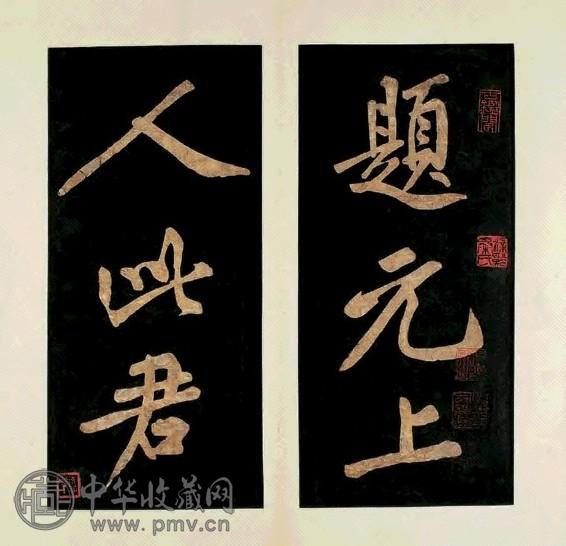 題元上
人此君
中华收藏网
www.pmv.cn